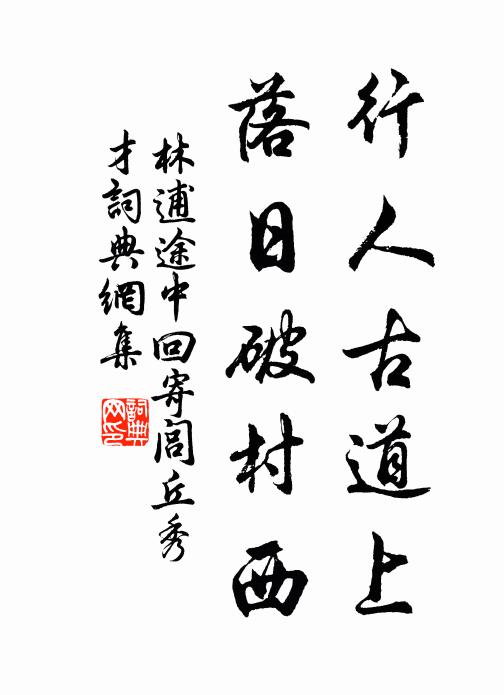 行人古道上
落日破村西
林逋途中回寄閭丘秀
才詞典網集
詞典
网印